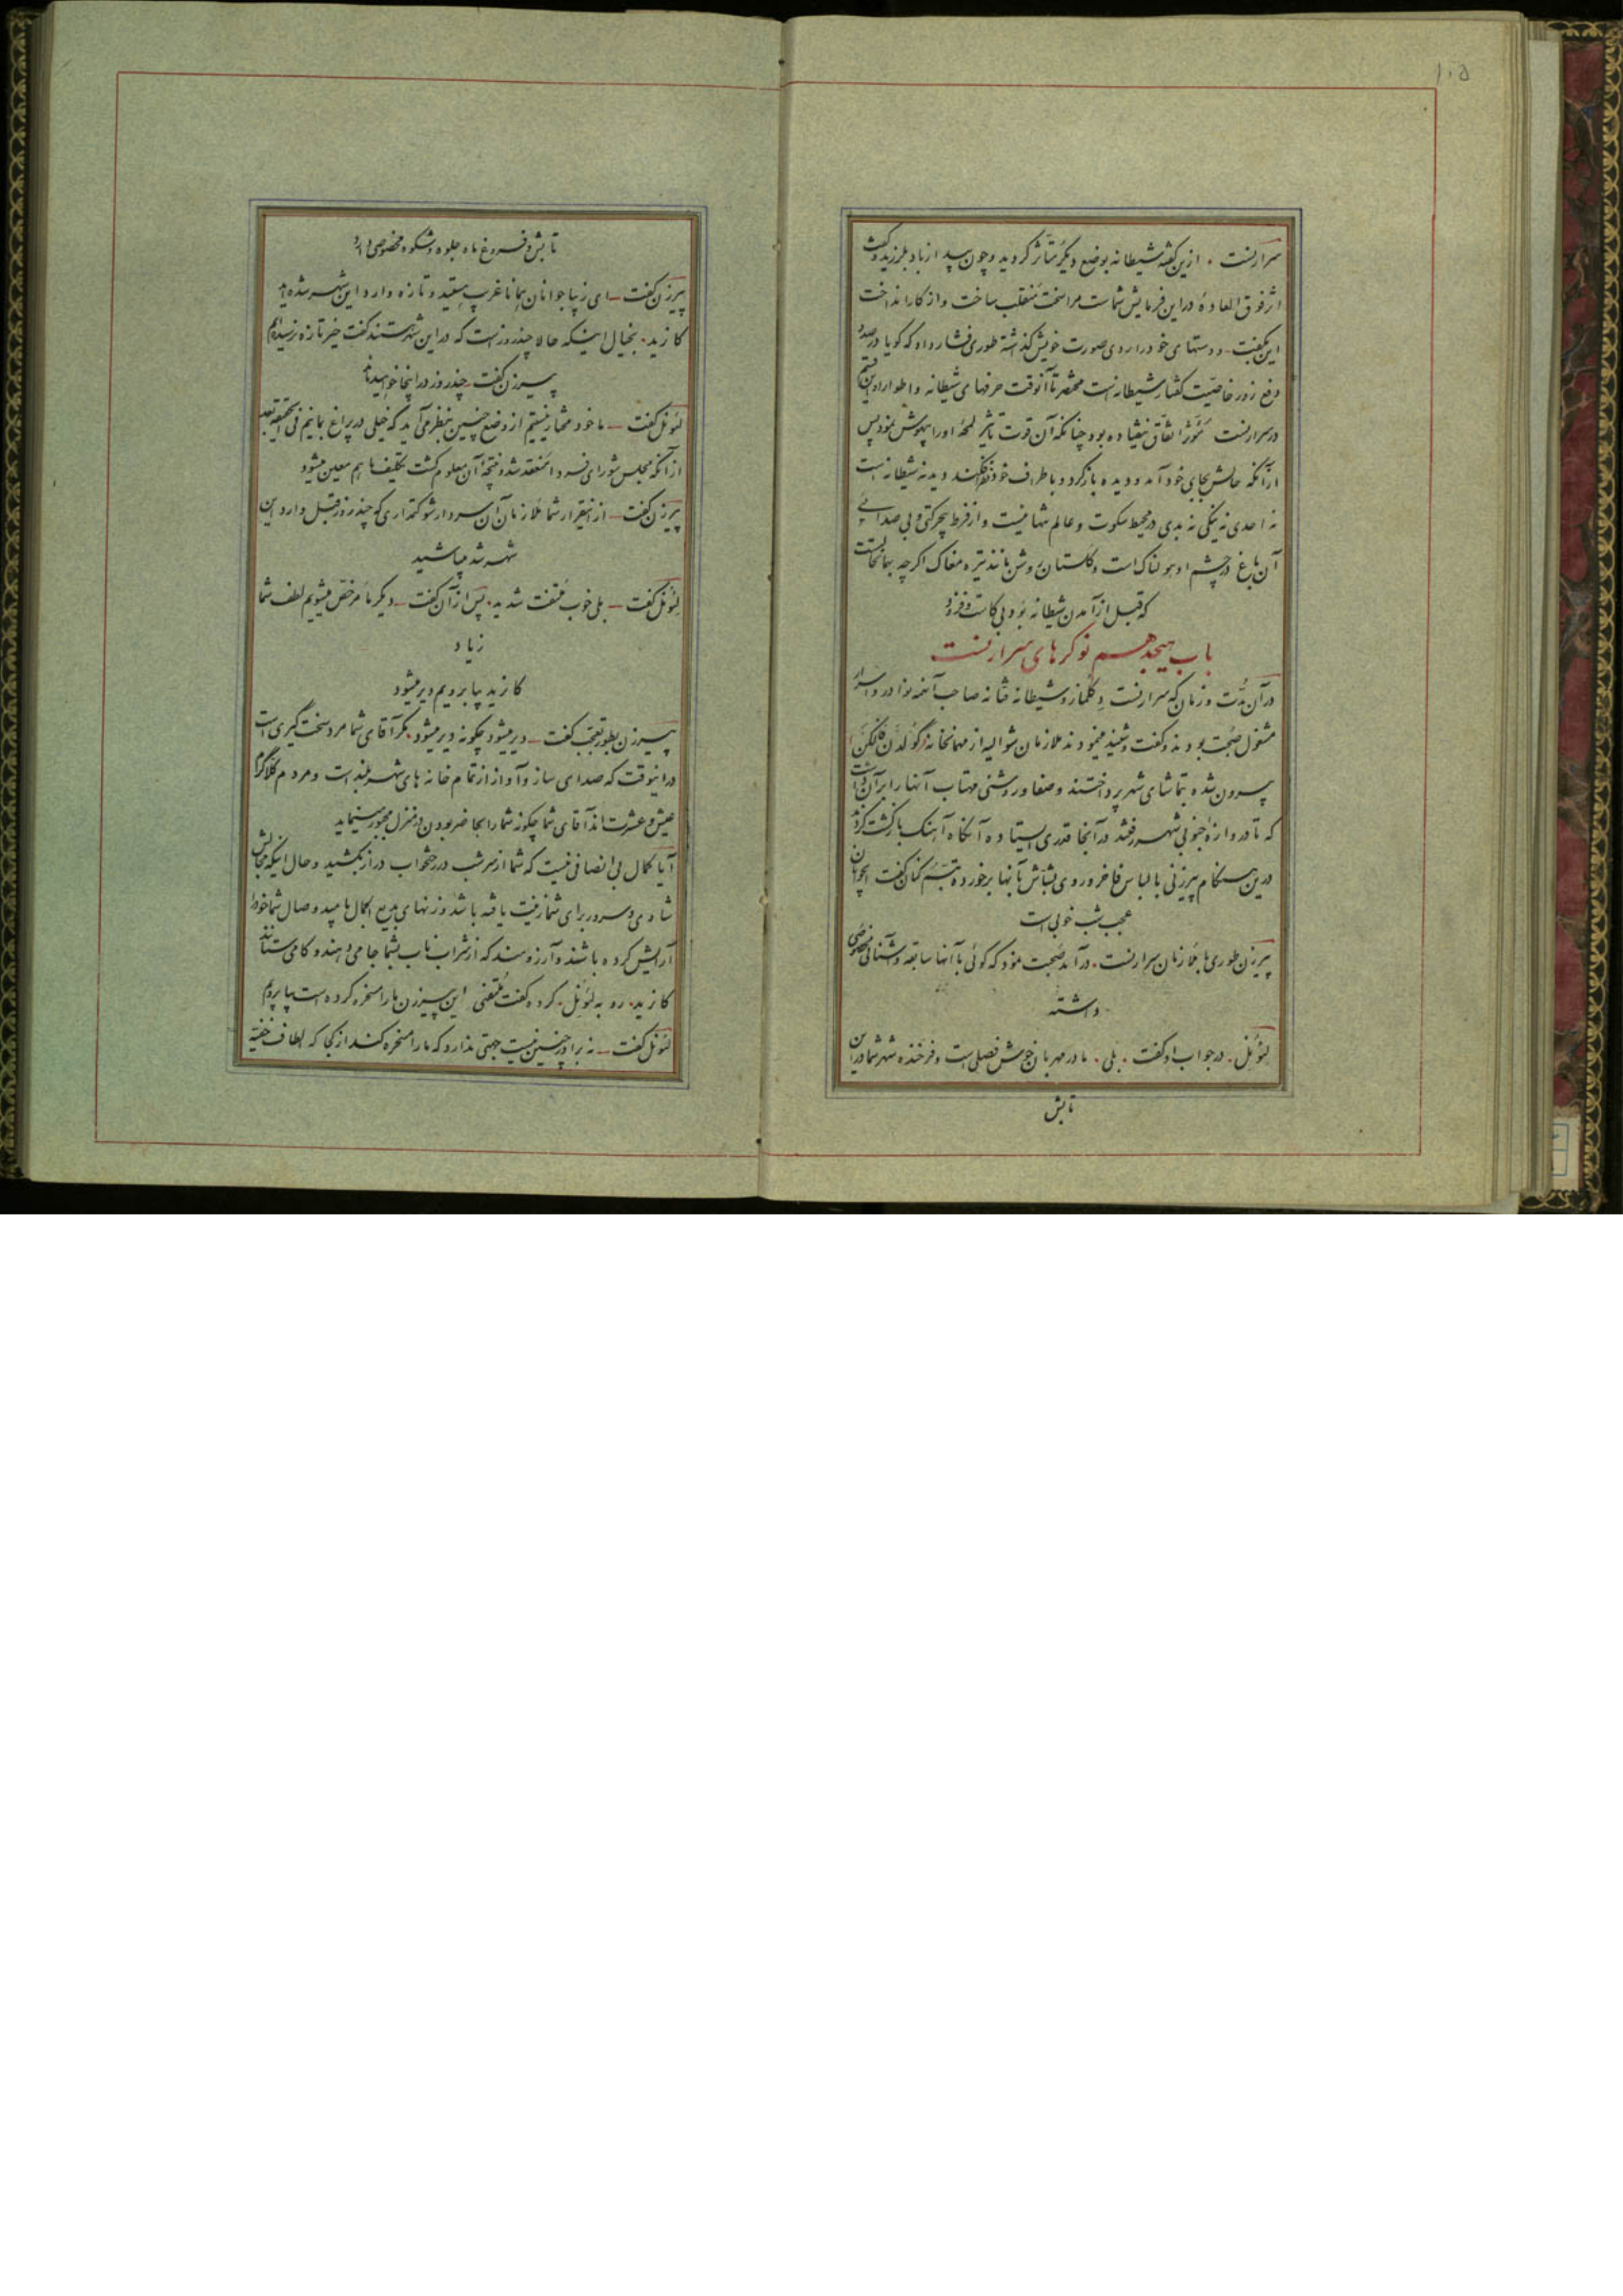 ۱۰۵
سرارنست . ازین گفته شیطانه بوضع دیگر متأثر گردید و چون بید از باد بلرزید و گفت
اثر فوق العادهٔ در این فرمایش شماست مرا سخت منقلب ساخت و از کار انداخت
این بگفت و دستهای خود را روی صورت خویش گذاشته طوری فشار داد که گویا در صدد
دفع زور خاصیت گفتار شیطانه است مختصر تا آنوقت حرفهای شیطانه و اطوار او این قسم
در سرارنست مؤثر اتفاق نیفتاده بود چنانکه آن قوت تأثیر لمحهٔ او را بیهوش نمود پس
از آنکه حالش بجای خود آمد و دیده باز کرد و باطراف خود نظر افکند دید نه شیطانه است
نه احدی نه نیکی نه بدی در محیط سکوت و عالم تنها نیست و از فرط بیحرکتی و بی صدائی
آن باغ در چشم او هولناک است و گلستان روشن مانند تیره مغاک اگرچه بهمانحالست
که قبل از آمدن شیطانه بود بی کاست و فزود
باب هیجدهم نوکرهای سرارنست
در آن مدت و زمان که سرارنست دکلماز و شیطانه فتانه صاحب آئینه نوادر و اسرار
مشغول صحبت بودند و گفت و شنید مینمودند ملازمان شوالیه از مهمانخانه گولدن فالکن
بیرون شده بتماشای شهر پرداختند و صفا و روشنی مهتاب آنها را بر آن داشت
که تا دروازهٔ جنوبی شهر رفتند در آنجا قدری ایستاده آنگاه آهنگ بازگشت کردند
درین هنگام پیرزنی با لباس فاخر و روی بشاش بآنها برخورده تبسم کنان گفت ایجوانان
عجب شب خوبی است
پیرزن طوری با ملازمان سرارنست . در آمد صحبت نمود که گوئی با آنها سابقه و آشنائی مخصوصی
داشته
لئونل . در جواب او گفت . بلی . مادر مهربان خوش فصلی است و فرخنده شهر شما در این
تابش
تابش و فروغ ماه جلوه و شکوه مخصوصی دارد
پیرزن گفت ـ ای زیبا جوانان همانا غریب هستید و تازه وارد این شهر شده‌اید
کازید . بخیال اینکه حالا چند روز است که در این شهر هستند گفت خیر تازه نرسیده‌ایم
پیرزن گفت ـ چند روز در اینجا خواهید ماند
لئونل گفت ـ ما خود مختار نیستیم از وضع چنین بنظر می‌آید که خیلی در پراغ بمانیم فی الحقیقه بعد
از آنکه مجلس شورای فردا منعقد شد و نتیجهٔ آن معلوم گشت تکلیف ما هم معین میشود
پیرزن گفت ـ از اینقرار شما ملازمان آن سردار شوکتمداری که چند روز قبل وارد این
شهر شد میباشید
لئونل گفت ـ بلی خوب ملتفت شدید . پس از آن گفت ـ دیگر ما مرخص میشویم لطف شما
زیاد
کازید بیا برویم دیر میشود
پیرزن بطور تعجب گفت ـ دیر میشود چگونه دیر میشود . مگر آقای شما مرد سخت گیری است
در اینوقت که صدای ساز و آواز از تمام خانه های شهر بلند است و مردم کلا گرم
عیش و عشرت‌اند آقای شما چگونه شما را بحاضر بودن در منزل مجبور مینماید
آیا کمال بی انصافی نیست که شما از سر شب در رختخواب دراز بکشید و حال اینکه مجالس
شادی و سرور برای شما زینت یافته باشد و زنهای بدیع الجمال بامید وصال شما خود را
آرایش کرده باشند و آرزومند که از شراب ناب بشما جامی دهند و کامی ستانند
کازید . رو به لئونل . کرده گفت ملتفتی این پیرزن ما را مسخره کرده است بیا برویم
لئونل گفت ـ نه برادر چنین نیست جهتی ندارد که ما را مسخره کند از کجا که الطاف خفیه